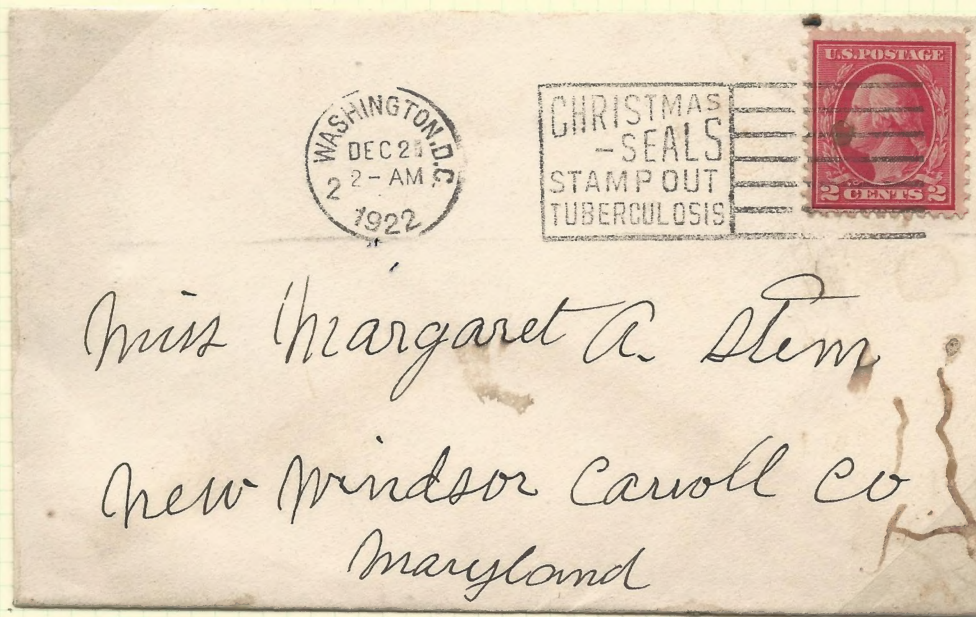 WASHINGTON, D.C.
DEC
2-AM
2
1922
CHRISTMAS
-SEALS
STAMP OUT
TUBERCULOSIS
U.S. POSTAGE
2 CENTS 2
Miss Margaret A. Stem
New Windsor Carroll Co
Maryland